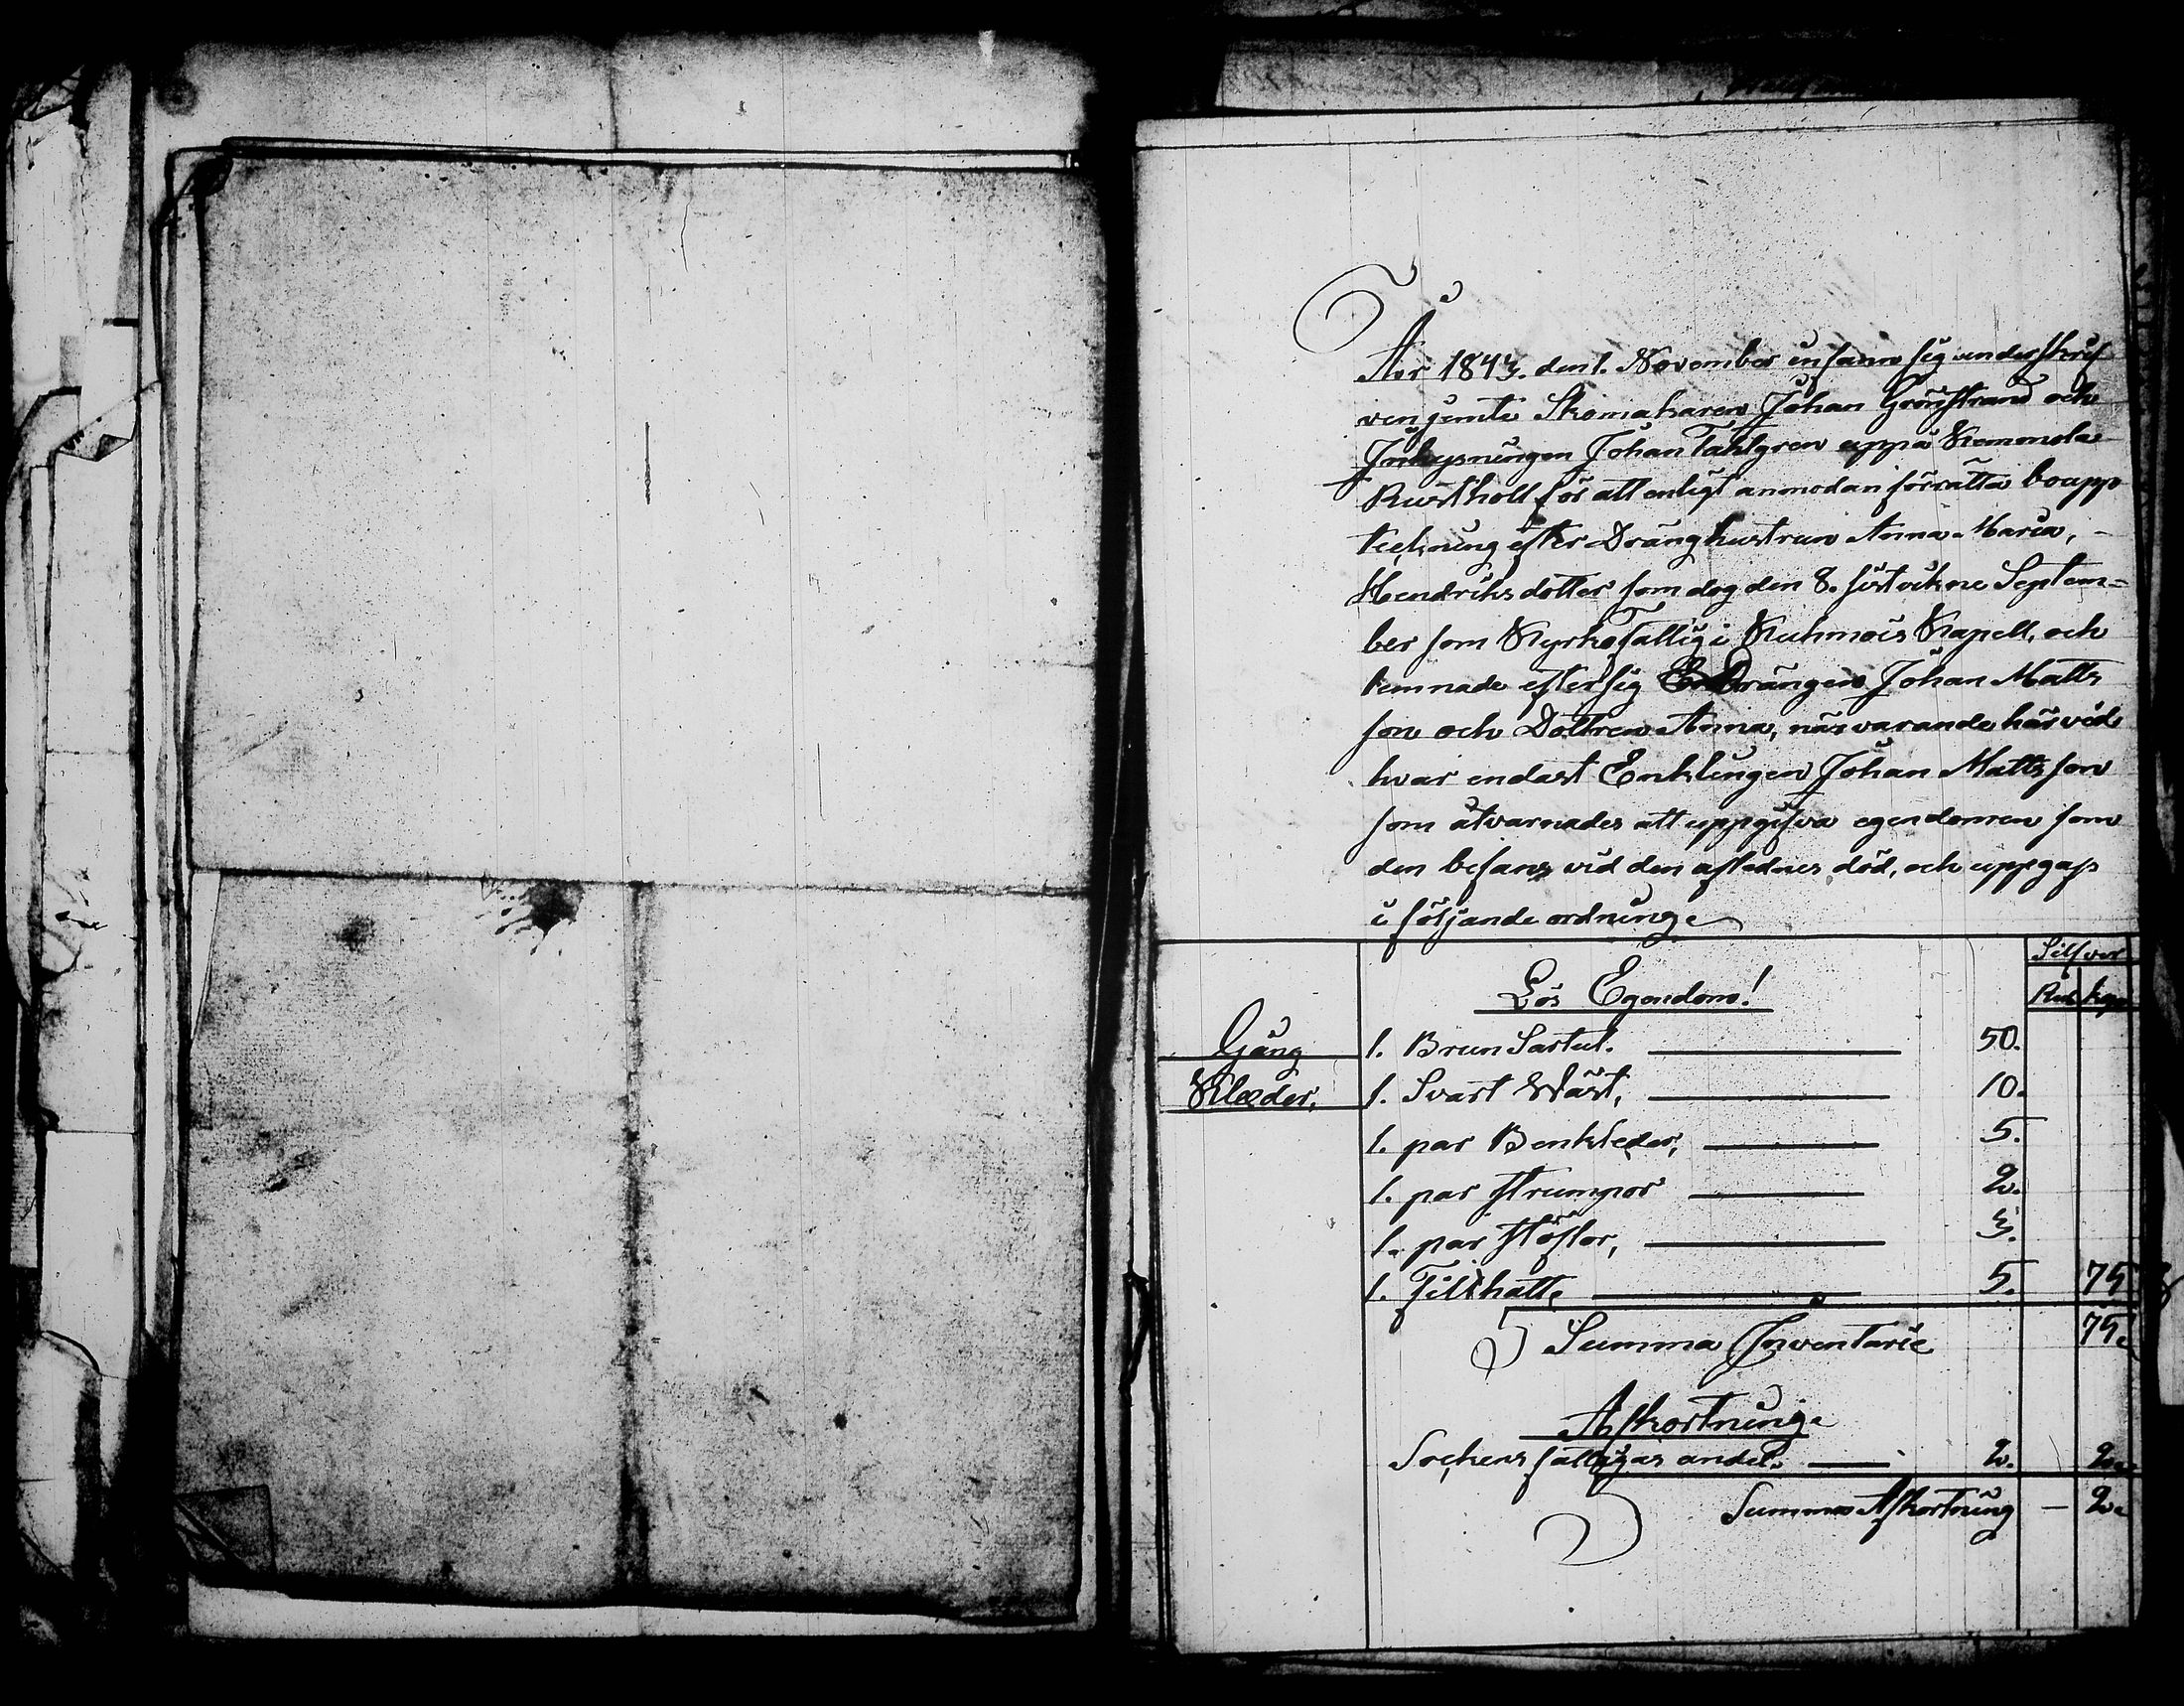 År 1843. den 1. November infann sig underskrif
ven jemte Skomakaren Johan Grönstrand och
Inhysningen Johan Tahlgren uppå Kemmola
Rusthåll för att enligt anmodan förrätta boupp
teckning efter Dränghustrun Anna Maria,
Hendriksdotter som dog den 8. sistvikne Septem=
ber som Kyrkofattig i Kuhmois Kapell, och
lemnade efter sig Drängen Johan Matts
son och Dottren Anna, närvarande härvid
hvar endast Enklingen Johan Mattsson
som åtvarnades att uppgifva egendomen som
den befans vid den aflednes död, och uppgafs
i följande ordning.
Silfver
Lös Egendom! Rub kop
Gång 1. Brun Sartut. 50.
Klæder, 1. Svart Wäst, 10.
1. par Benkleder, 5.
1. par strumpor 2.
1. par stöflor, 3.
1. Filthatt, 5. 75
Summa Inventarie 75.
Afkortning.
Sockens fattigas andel. 2. 2.
Summa Afkortning — 2.